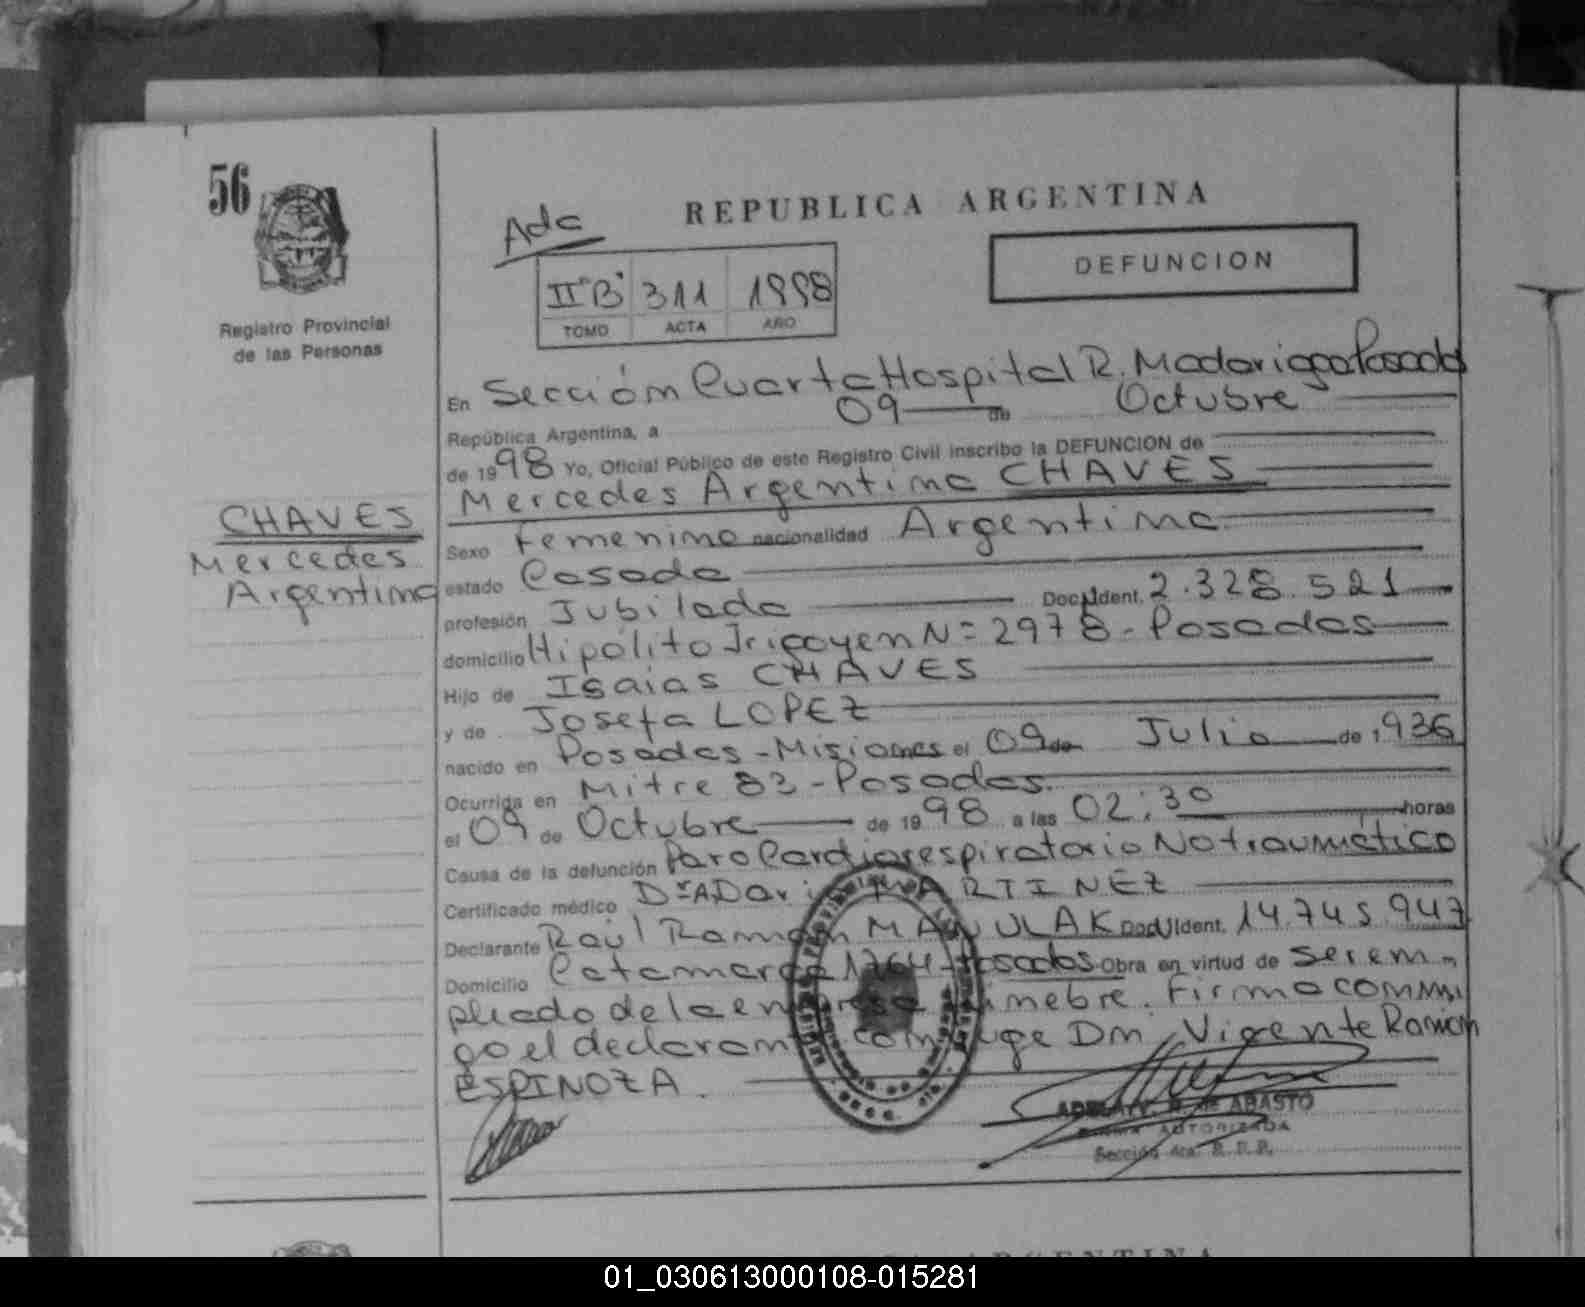 56
Registro Provincial
de las Personas
CHAVES
Mercedes
Argentina
REPUBLICA ARGENTINA
Ada
DEFUNCION
II"B" 311 1998
TOMO ACTA AÑO
En Sección Cuarta Hospital R. Madariaga Posadas
República Argentina, a 09 de Octubre
de 1998 Yo, Oficial Público de este Registro Civil inscribo la DEFUNCION de
Mercedes Argentina CHAVES
Sexo Femenino nacionalidad Argentina
estado Casada
profesión Jubilada Doc. Ident. 2.328.521
domicilio Hipólito Irigoyen Nº 2978 - Posadas
Hijo de Isaias CHAVES
y de Josefa LOPEZ
nacido en Posadas - Misiones el 09 de Julio de 1.936
Ocurrida en Mitre 83 - Posadas.
el 09 de Octubre de 1998 a las 02:30 horas
Causa de la defunción Paro Cardiorespiratorio No traumático
Certificado médico MARTINEZ
Declarante Raúl Ramón Ident. 14.745.947
Domicilio Catamarca 1764 - Posadas Obra en virtud de ser em-
pleado de la empresa funebre. Firma conmi
go el declarante conyuge Dn. Vicente Ramón
ESPINOZA.
DE ABASTO
FIRMA AUTORIZADA
Sección 4ta. R.P.P.
ARGENTINA
01_030613000108-015281